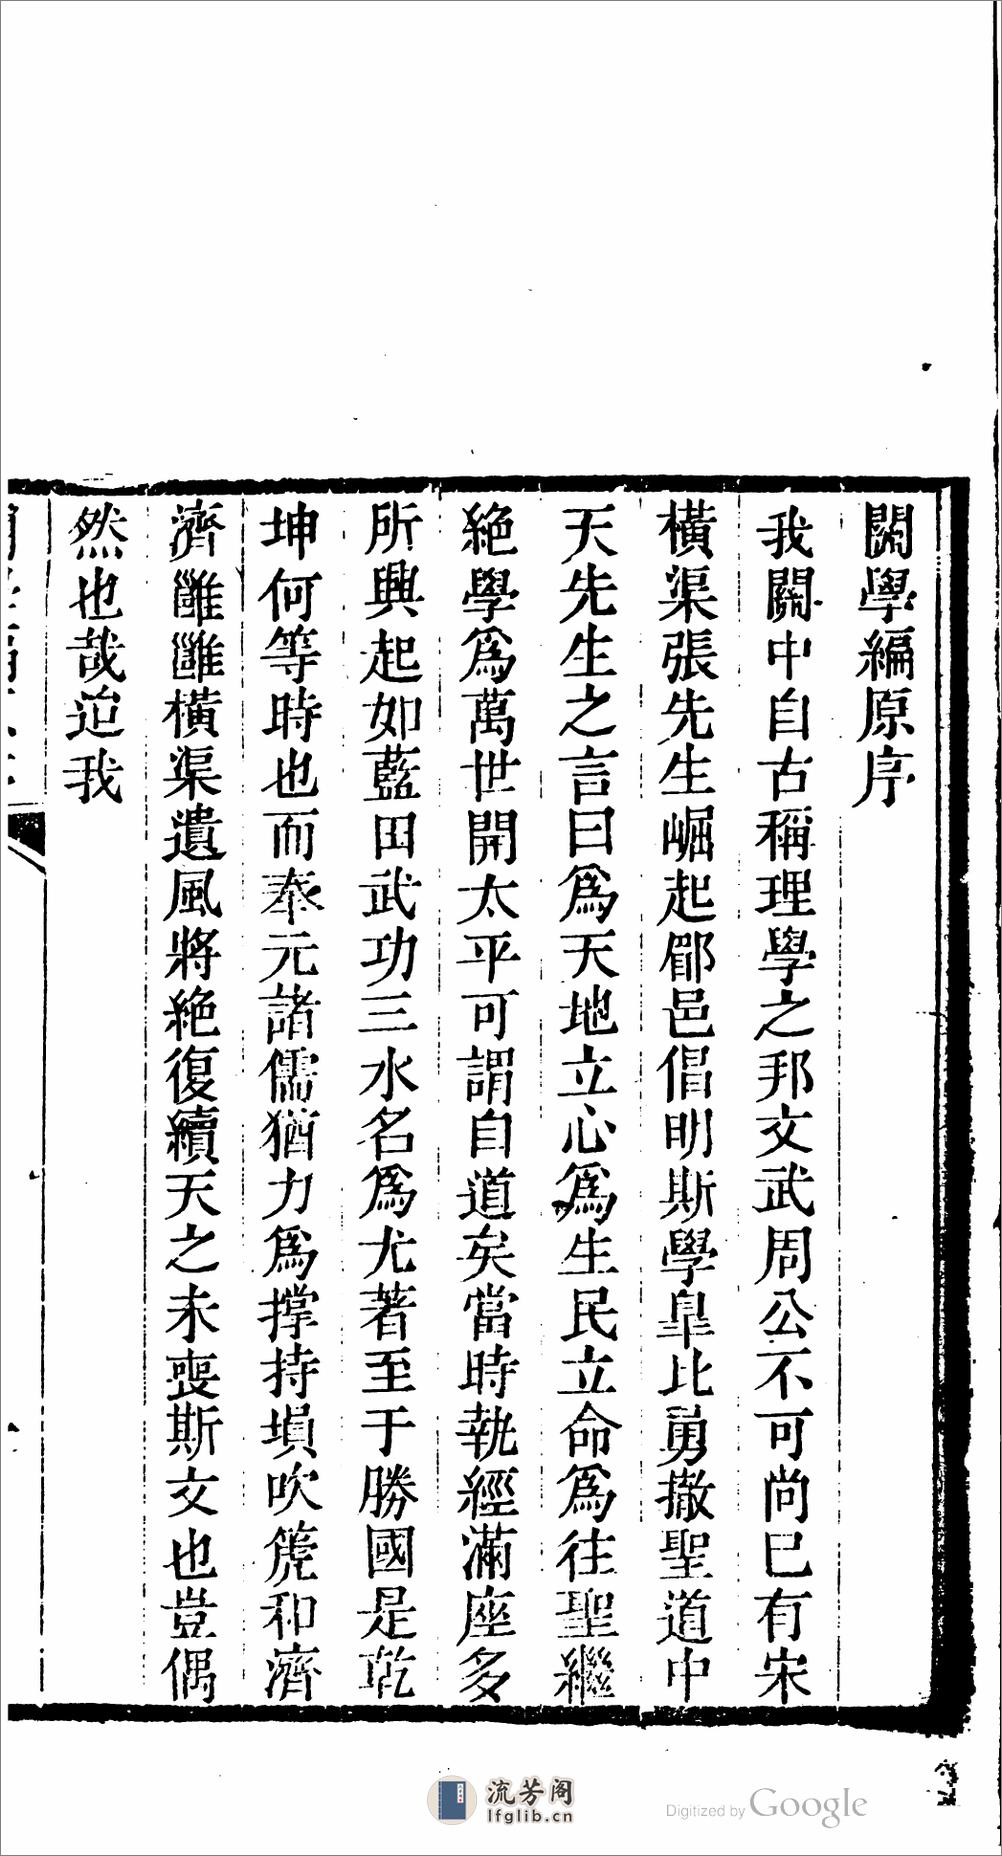 關學編原序
我關中自古稱理學之邦文武周公不可尚巳有宋
橫渠張先生崛起郿邑倡明斯學臯比勇撤聖道中
天先生之言曰爲天地立心爲生民立命爲往聖繼
絶學爲萬世開太平可謂自道矣當時執經滿座多
所興起如藍田武功三水名爲尤著至于勝國是乾
坤何等時也而奉元諸儒猶力爲撑持塤吹箎和濟
濟雝雝橫渠遺風將絶復續天之未喪斯文也豈偶
然也哉迨我
流芳阁
lfglib.cn
Digitized by Google